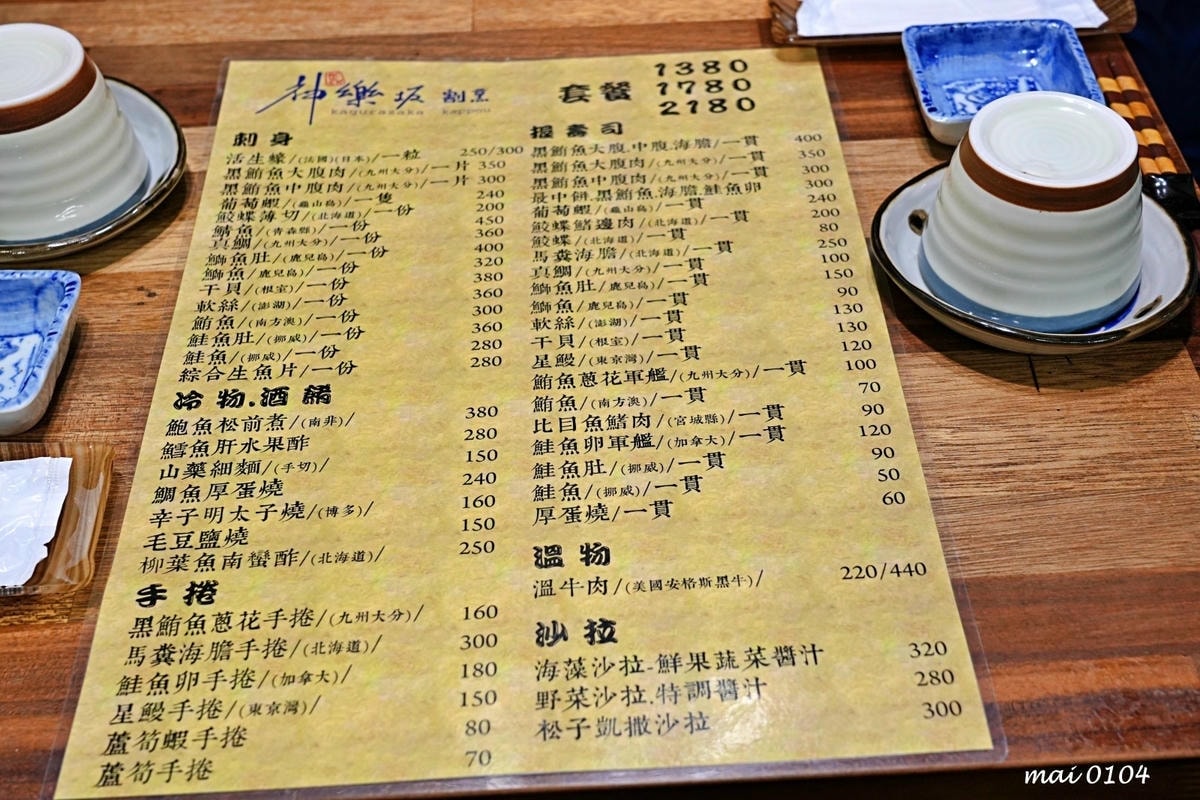 神樂坂 割烹
kagurazaka kappou
套餐 1380
1780
2180
刺身
活生蠔/(法國)(日本)/一粒 250/300
黑鮪魚大腹肉/(九州大分)/一片 350
黑鮪魚中腹肉/(九州大分)/一片 300
葡萄蝦/(龜山島)/一隻 240
鮫蝶薄切/(北海道)/一份 200
鯖魚/(青森縣)/一份 450
真鯛/(九州大分)/一份 360
鰤魚肚/(鹿兒島)/一份 400
鰤魚/鹿兒島/一份 320
干貝/(根室)/一份 380
軟絲/(澎湖)/一份 360
鮪魚/(南方澳)/一份 300
鮭魚肚/(挪威)/一份 360
鮭魚/(挪威)/一份 280
綜合生魚片/一份 280
冷物.酒餚
鮑魚松前煮/(南非)/ 380
鱈魚肝水果酢 280
山藥細麵/(手切)/ 150
鯛魚厚蛋燒 240
辛子明太子燒/(博多)/ 160
毛豆鹽燒 150
柳葉魚南蠻酢/(北海道)/ 250
手捲
黑鮪魚蔥花手捲/(九州大分)/ 160
馬糞海膽手捲/(北海道)/ 300
鮭魚卵手捲/(加拿大)/ 180
星鰻手捲/(東京灣)/ 150
蘆筍蝦手捲 80
蘆筍手捲 70
握壽司
黑鮪魚大腹.中腹.海膽/一貫 400
黑鮪魚大腹肉/(九州大分)/一貫 350
黑鮪魚中腹肉/(九州大分)/一貫 300
最中餅.黑鮪魚.海膽.鮭魚卵 300
葡萄蝦/(龜山島)/一貫 240
鮫蝶鰭邊肉/(北海道)/一貫 200
鮫蝶/(北海道)/一貫 80
馬糞海膽/(北海道)/一貫 250
真鯛/(九州大分)/一貫 100
鰤魚肚/(鹿兒島)/一貫 150
鰤魚/鹿兒島/一貫 90
軟絲/(澎湖)/一貫 130
干貝/(根室)/一貫 130
星鰻/(東京灣)/一貫 120
鮪魚蔥花軍艦/(九州大分)/一貫 100
鮪魚/(南方澳)/一貫 70
比目魚鰭肉/(宮城縣)/一貫 90
鮭魚卵軍艦/(加拿大)/一貫 120
鮭魚肚/(挪威)/一貫 90
鮭魚/(挪威)/一貫 50
厚蛋燒/一貫 60
溫物
溫牛肉/(美國安格斯黑牛)/ 220/440
沙拉
海藻沙拉-鮮果蔬菜醬汁 320
野菜沙拉.特調醬汁 280
松子凱撒沙拉 300
mai 0104